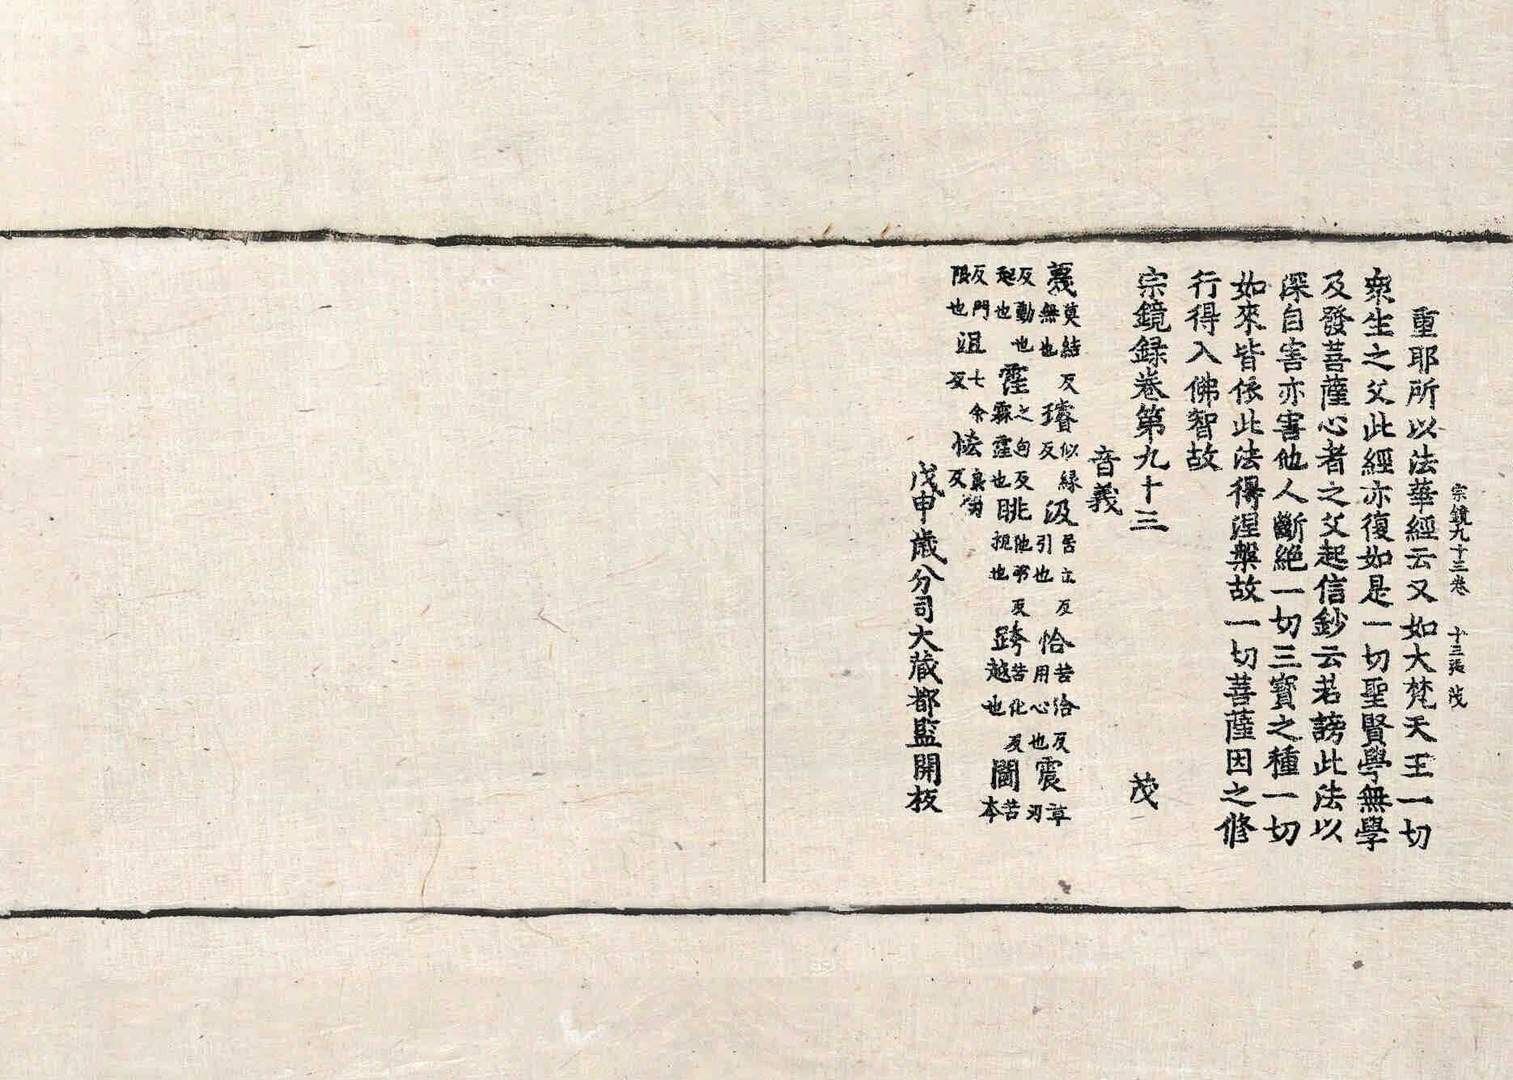 宗鏡九十三卷 十三張 茂
重耶所以法華經云又如大梵天王一切
衆生之父此經亦復如是一切聖賢學無學
及發菩薩心者之父起信鈔云若謗此法以
深自害亦害他人斷絕一切三寶之種一切
如來皆依此法得涅槃故一切菩薩因之修
行得入佛智故
宗鏡録卷第九十三 茂
音義
蔑莫結反無也 璿似緣反 汲居立反引也 恰苦洽反用心也 震章刃
反動也起也 霔之句反霖霔也 眺他弔反視也 跨苦化反越也 閫苦本
反門限也 沮七余反 怯去劫反
戊申歳分司大藏都監開板